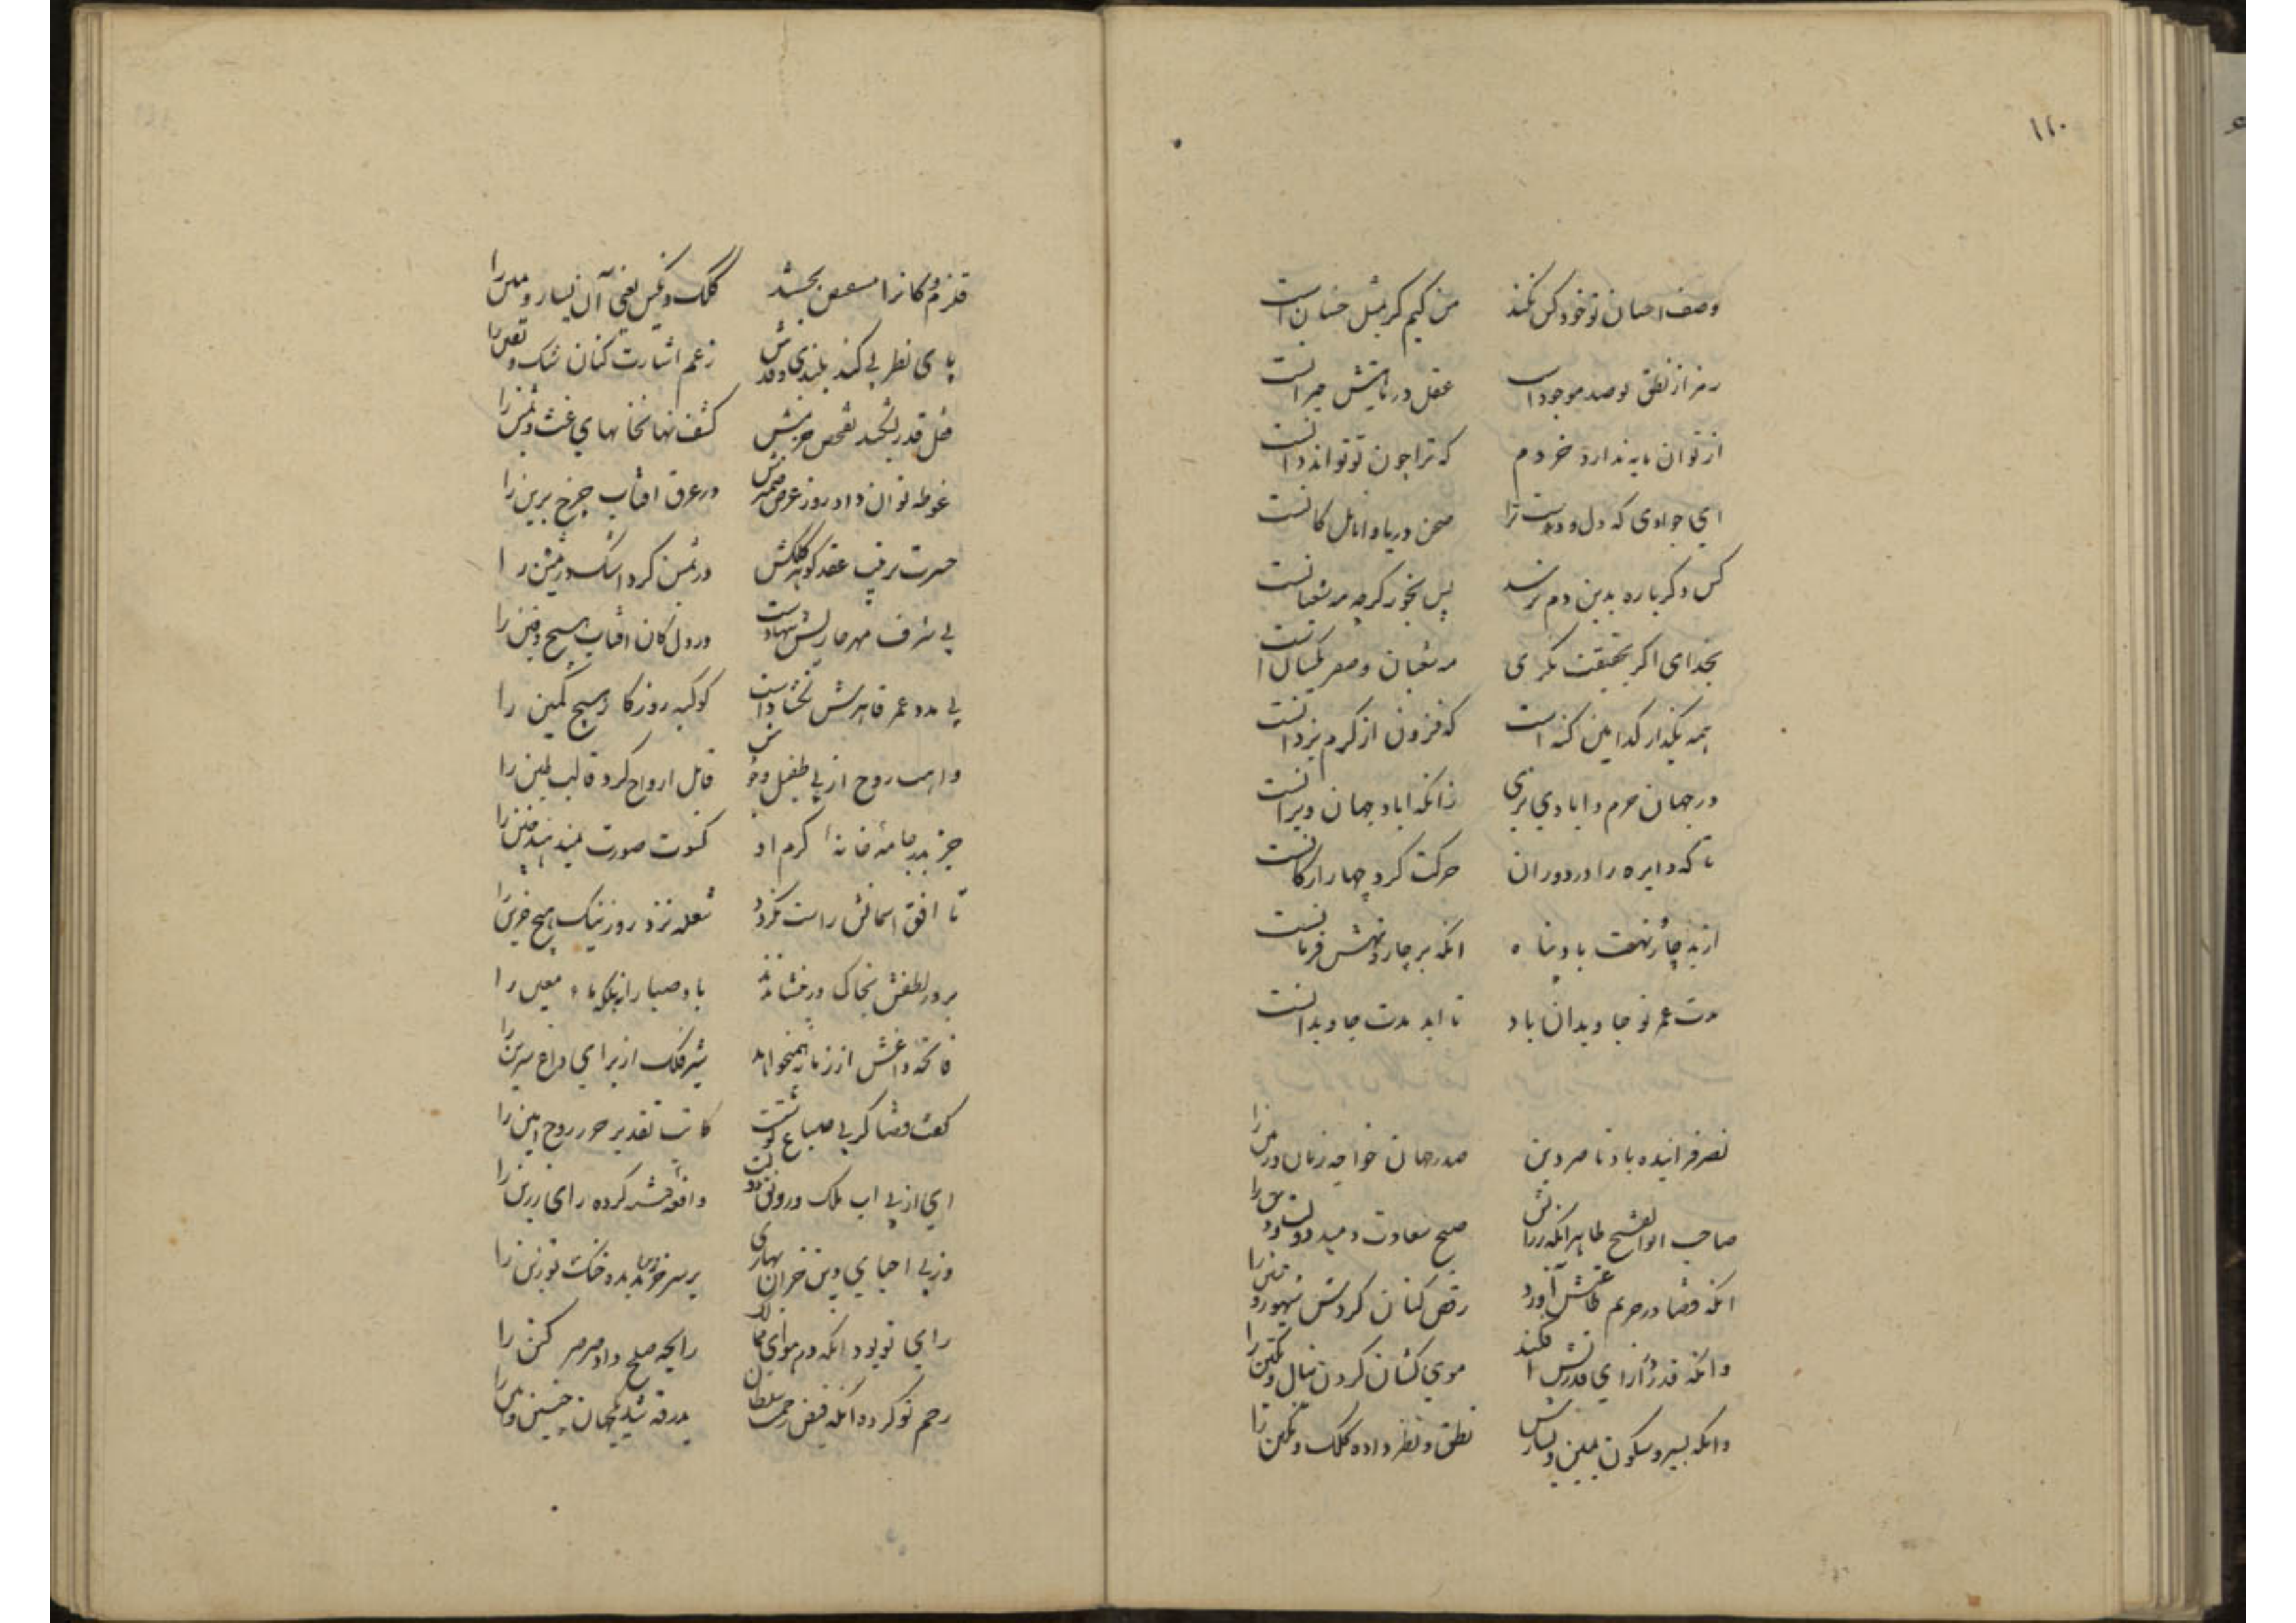 ۱۲۰
وصف احسان تو خود کس نکند من کیم کر بمثل حسانست
رمز از نطق تو صد موجودات عقل در ماهیتش حیرانست
از توان مایه ندارد خردم که ترا چون تو تواند دانست
ای جوادی که دل و دست ترا صحن دریا و انامل کانست
کس دکرباره بدین دم نرسد پس بخور کرچه مه شعبانست
بخدای ار بحقیقت نکری مه شعبان و صفر یکسانست
همه بکذار کدامین کنه است که فزون از کرم یزدانست
در جهان خرم و آبادی بزی زانکه آباد جهان ویرانست
تا که دایره را در دوران حرکت کرد چهار ارکانست
از بد چار و نهت باد پناه انکه بر چار و نهش فرمانست
مدت عمر تو جاویدان باد تا ابد مدت جاویدانست
نصر فزاینده باد ناصر دین را صدر جهان خواجه زمان و زمین را
صاحب ابوالفتح طاهر انکه ز رایش صبح سعادت دمید دولت و دین را
انکه قضا در حریم طاعتش آورد رقص کنان کردش شهور و سنین را
وانکه قدر در ازای قدرتش افکند موی کشان کردن ینال و تکین را
وانکه بسیر و سکون یمین و یسارش نطق و نظر داده کلک و نکین را
قلزم و کانرا بخشد کلک و نکین یعنی آن یسار و یمین را
پای نظر پی کند بلندی قدرش زعم اشارت کنان شک و یقین را
حل قدر تفحص حزمش کشف نهانخانهای غث و ثمین را
غوطه توان داد روز عرض ضمیرش در عرق افتاب چرخ برین را
حسرت ترتیب عقد کوهر کلکش در ثمین کرد اشک در ثمین را
بی شرف مهر خازنیش ننهادست در دل کان افتاب هیچ دفین را
بی مدد عمر قاهرش نکشادست کوکبه روزکار هیچ کمین را
واهب روح از پی طفیل وجودش قابل ارواح کرد قالب طین را
جز بدر جامه خانه کرم او کسوت صورت نمیدهند جنین را
تا افق آستانش راست نکردد شعله نزد روز نیک هیچ حزین را
بر در لطفش بخاک در ننشاندند باد صبا را نه بلکه ماء معین را
فاتحه داغش از زمانه همیخواند شیر فلک از برای داغ سرین را
کفت قضا کز پی سباع نوشتست کاتب تقدیر حرز روح امین را
ای از پی آب ملک و رونق دولت واقعه کرده رای رزین را
وز پی احیای دین خزان و بهاری بر سر خر زین ندیده خنک تو زین را
رای تو بود انکه در هوای ممالک رایحه صلح داد صرصر کین را
رحم تو کرد انکه فیض رحمت سلطان بدرقه شد یک جهان حنین و انین را